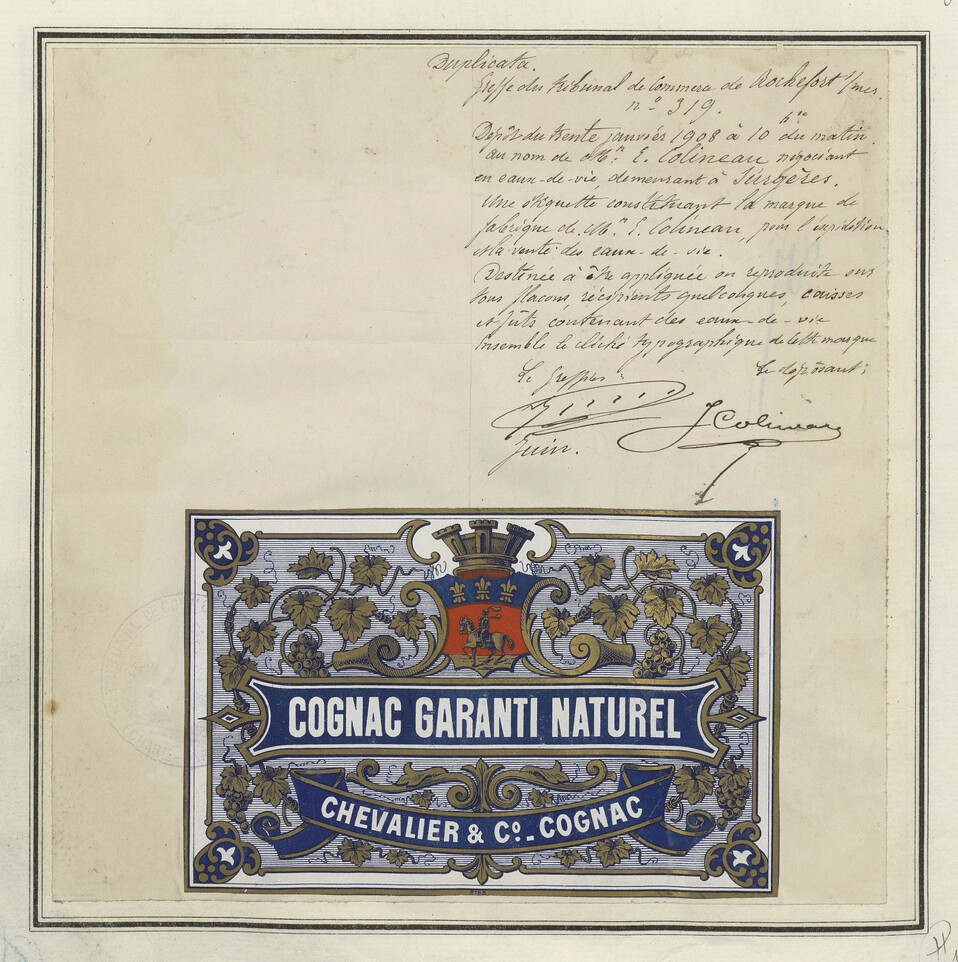 Duplicata.
Greffe du tribunal de Commerce de Rochefort s/mer.
n° 319.
Dépôt du trente janvier 1908 à 10 hres du matin
au nom de Mr E. Colineau négociant
en eaux-de-vie, demeurant à Surgères.
Une étiquette constituant la marque de
fabrique de Mr E. Colineau, pour l'expédition
et la vente des eaux-de-vie.
Destinée à être appliquée ou reproduite sur
tous flacons, récipients quelconques, caisses
et fûts contenant des eaux-de-vie
Ensemble le cliché typographique de cette marque
Le Greffier: Le déposant:
Colineau
COGNAC GARANTI NATUREL
CHEVALIER & Co. - COGNAC